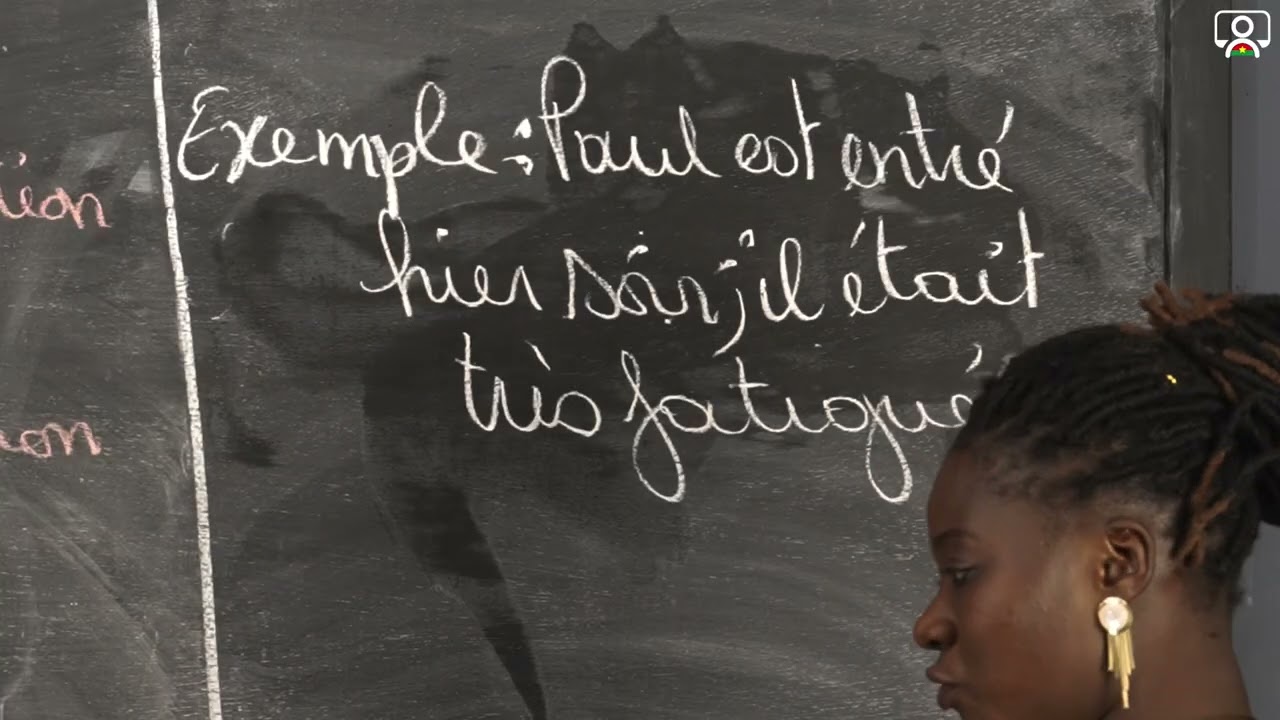 Exemple : Paul est entré
hier soir ; il était
très fatigué